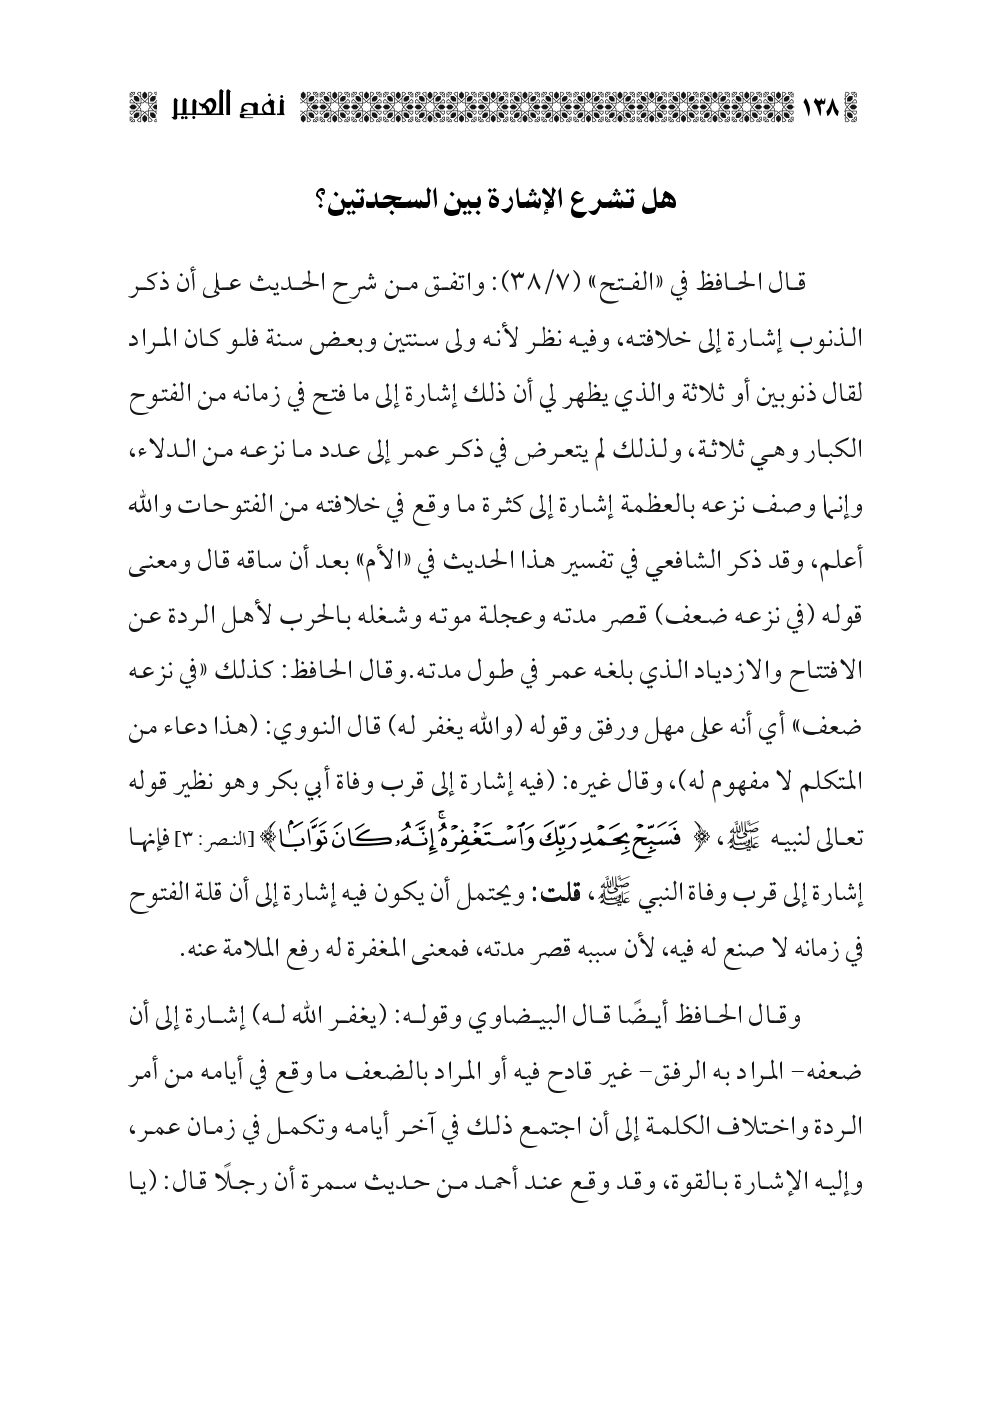 ١٣٨ نفح العبير
هل تشرع الإشارة بين السجدتين؟
قال الحافظ في «الفتح» (٣٨/٧): واتفق من شرح الحديث على أن ذكر
الذنوب إشارة إلى خلافته، وفيه نظر لأنه ولى سنتين وبعض سنة فلو كان المراد
لقال ذنوبين أو ثلاثة والذي يظهر لي أن ذلك إشارة إلى ما فتح في زمانه من الفتوح
الكبار وهي ثلاثة، ولذلك لم يتعرض في ذكر عمر إلى عدد ما نزعه من الدلاء،
وإنما وصف نزعه بالعظمة إشارة إلى كثرة ما وقع في خلافته من الفتوحات والله
أعلم، وقد ذكر الشافعي في تفسير هذا الحديث في «الأم» بعد أن ساقه قال ومعنى
قوله (في نزعه ضعف) قصر مدته وعجلة موته وشغله بالحرب لأهل الردة عن
الافتتاح والازدياد الذي بلغه عمر في طول مدته.وقال الحافظ: كذلك «في نزعه
ضعف» أي أنه على مهل ورفق وقوله (والله يغفر له) قال النووي: (هذا دعاء من
المتكلم لا مفهوم له)، وقال غيره: (فيه إشارة إلى قرب وفاة أبي بكر وهو نظير قوله
تعالى لنبيه ﷺ، ﴿ فَسَبِّحْ بِحَمْدِ رَبِّكَ وَٱسْتَغْفِرْهُ ۚ إِنَّهُۥ كَانَ تَوَّابًۢا﴾ [النصر: ٣] فإنها
إشارة إلى قرب وفاة النبي ﷺ، قلت: ويحتمل أن يكون فيه إشارة إلى أن قلة الفتوح
في زمانه لا صنع له فيه، لأن سببه قصر مدته، فمعنى المغفرة له رفع الملامة عنه.
وقال الحافظ أيضًا قال البيضاوي وقوله: (يغفر الله له) إشارة إلى أن
ضعفه– المراد به الرفق– غير قادح فيه أو المراد بالضعف ما وقع في أيامه من أمر
الردة واختلاف الكلمة إلى أن اجتمع ذلك في آخر أيامه وتكمل في زمان عمر،
وإليه الإشارة بالقوة، وقد وقع عند أحمد من حديث سمرة أن رجلًا قال: (يا